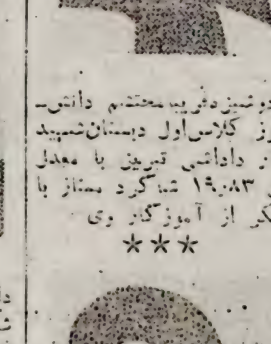 دوشیزه فریبا محتشم دانش‌ـ
ز کلاس اول دبستان شهید
ر داداشی تبریز با معدل
۱۹٫۸۳ شاگرد ممتاز با
کر از آموزگار وی
***